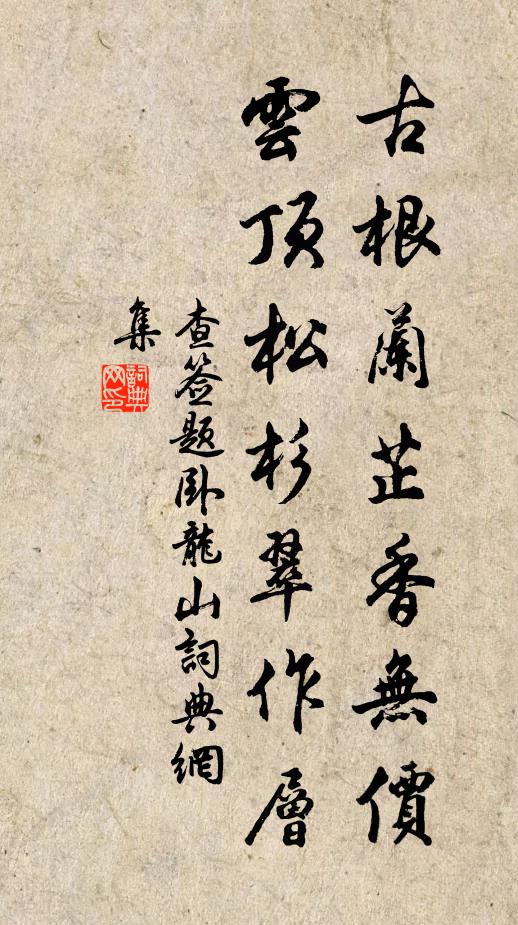 古根蘭芷香無價
雲頂松杉翠作層
查签題卧龍山詞典網
集
詞典
网印